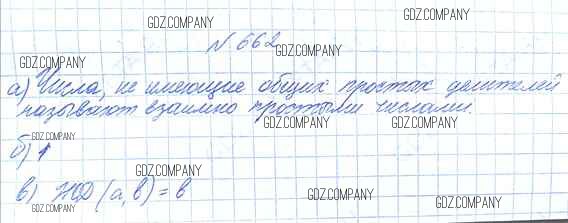 GDZ.COMPANY
GDZ.COMPANY
№ 662
GDZ.COMPANY
GDZ.COMPANY
GDZ.COMPANY
а) Числа, не имеющие общих простых делителей
называют взаимно простыми числами.
GDZ.COMPANY
GDZ.COMPANY
GDZ.COMPANY
б) 1
GDZ.COMPANY
в) НОД (a, b) = b
GDZ.COMPANY
GDZ.COMPANY
GDZ.COMPANY